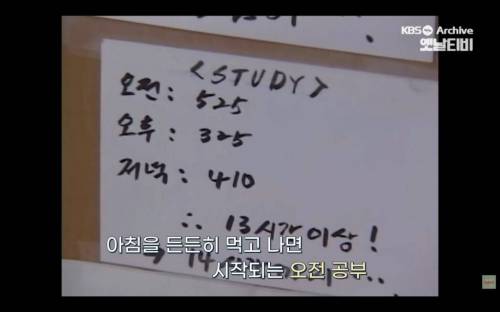 KBS Archive
옛날티비
<STUDY>
오전 : 525
오후 : 325
저녁 : 410
∴ 13시간 이상!
아침을 든든히 먹고 나면
→ 14
시작되는 오전 공부